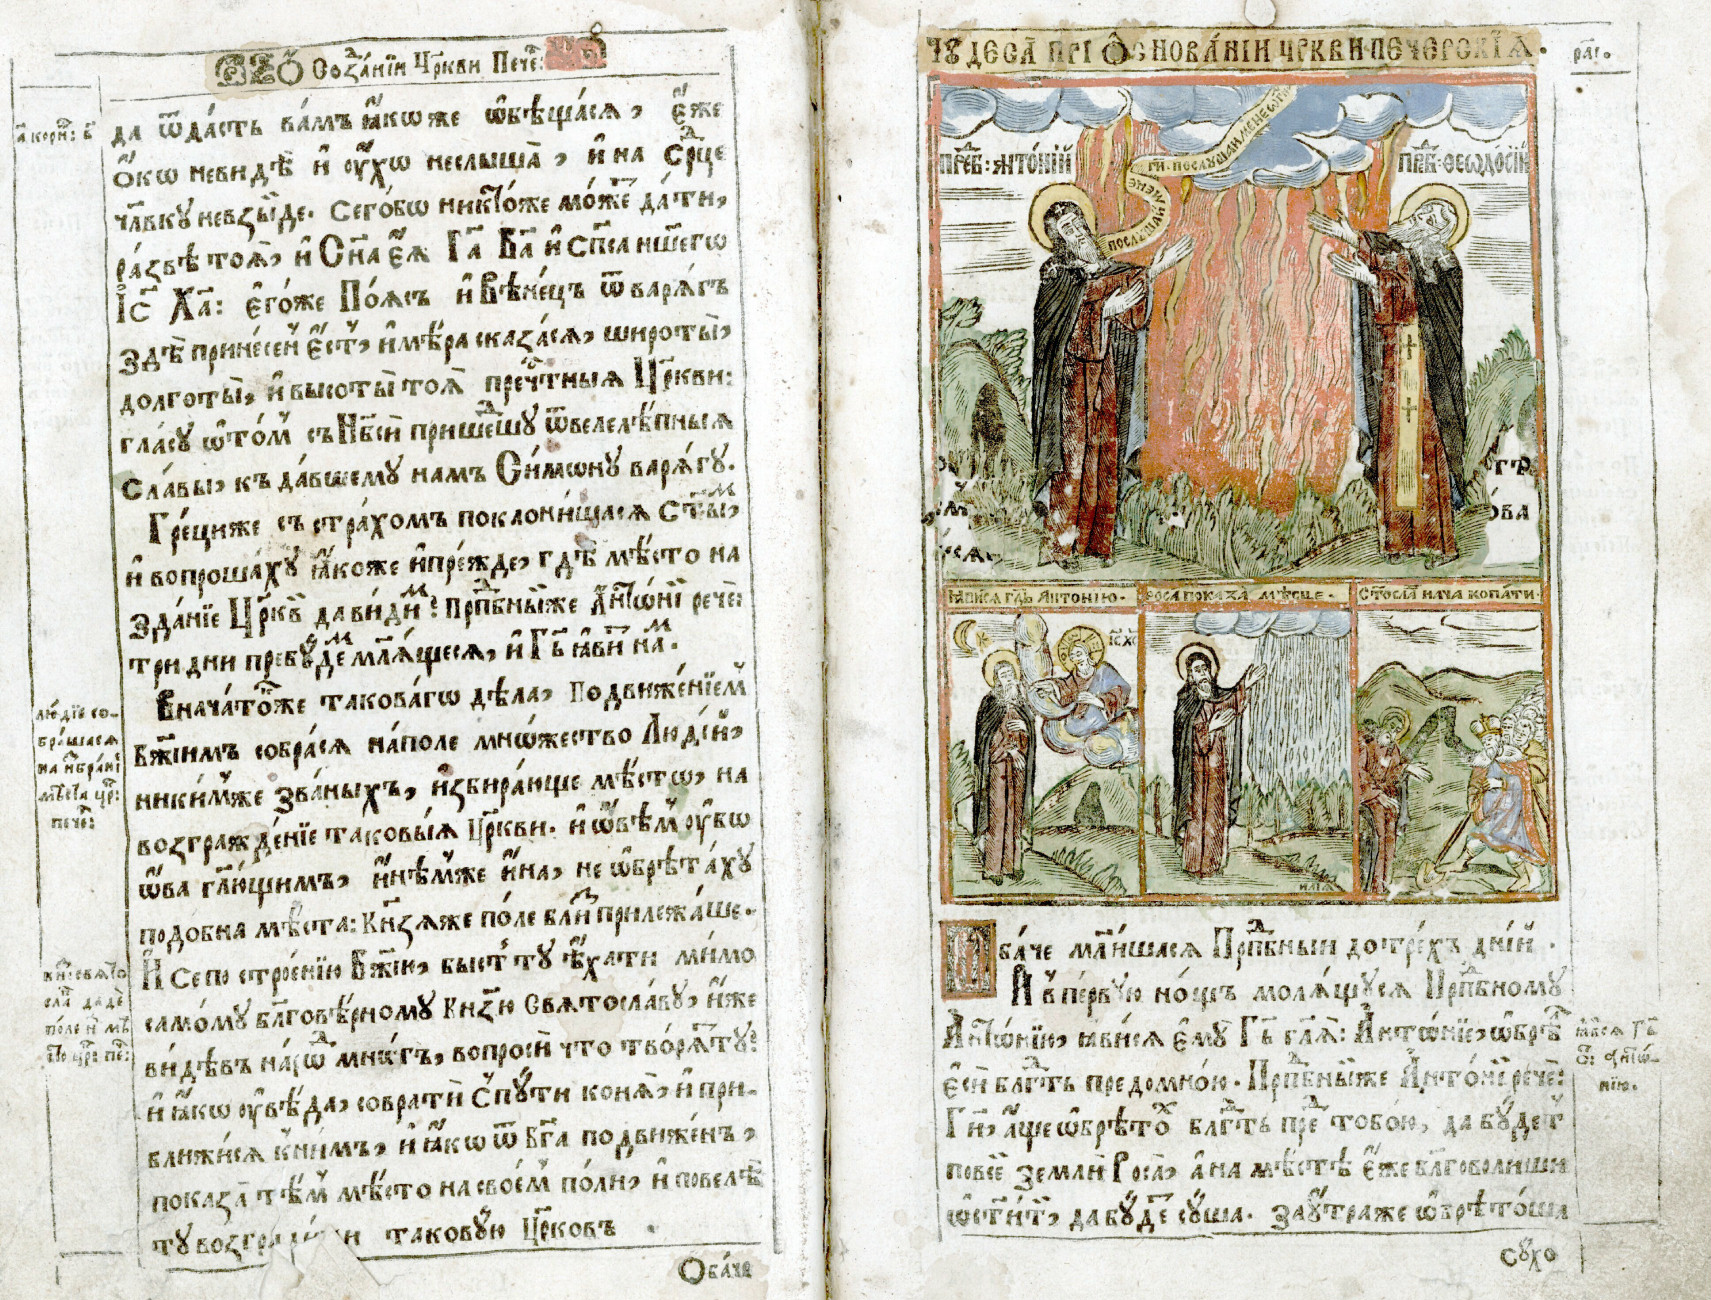 Ѻ Созда́нїи Ц҃ркви Пече:
а҃ корнѳ: в҃
да ѿда́сть ва́мъ ꙗ҆́коже ѡ҆бѣща́сѧ, є҆́же
ѻ҆́ко неви́дѣ и҆ ᲂу҆́хо неслы́ша, и҆ на Ср҃це
чл҃вку невзы́де. Сегѡ́бо никто́же мо́же да́ти,
ра́звѣ тоѧ̀, и҆ Сн҃а є҆ѧ̀ Гд҃а Бг҃а и҆ сп҃са на́шегѡ
І҆с҃ Хр҃та: є҆го́же По́ѧсъ и҆ Вѣне́цъ ѿ варѧ́гъ
здѣ̀ принесе́нъ є҆́сть, и҆ мѣ́ра сказа́сѧ, широты̀,
долготы̀, и҆ высоты̀ тоѧ̀ преч҃тныѧ Ц҃ркви:
гла́су ѡ҆ то́мъ съ Нб҃сѝ прише́дшу ѿ велелѣ́пныѧ
сла́вы, къ да́вшему намъ Си́мѡну варѧ́гу.
Гре́циже съ стра́хомъ поклони́шасѧ Ст҃ы́м,
и҆ вопроша́ху ꙗ҆́коже и҆ пре́жде, гдѣ̀ мѣ́сто на
зда́нїе Ц҃ркве да ви́дим? Прп҃бны́йже Анто́нїй речѐ:
три дни пребу́дем молѧ́щесѧ, и҆ Гд҃ь ꙗ҆ви́т на́м.
Внача́тоже такова́гѡ дѣ́ла, Подвиже́нїем
Бж҃їимъ собра́сѧ на по́ле мно́жество Люді́й,
ники́мже зва́ныхъ, и҆збира́юще мѣ́сто, на
возгражде́нїе таковы́ѧ Ц҃ркви. и҆ ѡ҆ всѣ́м ᲂу҆́бо
ѡ҆́ва гл҃ющимъ, и҆нѣ́мже и҆́на, не ѡ҆брѣта́ху
подо́бна мѣ́ста: Кн҃зѧже по́ле бли́з прилежа́ше.
И҆ се по строе́нїю Бж҃їю, бы́сть ту̀ ѣ҆́хати ми́мо
самому̀ бл҃говѣ́рному Кн҃зю Свѧтосла́ву, и҆́же
ви́дѣвъ наро́дъ мно́гъ, вопросѝ что̀ творѧ́т ту̀?
и҆ ꙗ҆́кѡ ᲂу҆вѣ́да, соврати́ с пути́ конѧ̀, и҆ при-
бли́жисѧ к ни́мъ, и҆ ꙗ҆́кѡ ѿ Бг҃а подви́женъ,
показа̀ тѣ́м мѣ́сто на свое́м по́ли, и҆ повелѣ̀
ту̀ таковую Ц҃рковь
лю́дїе со-
бра́шасѧ
на и҆збра́нї
мѣста цр҃:
пече:
кн҃: свѧто
сла̀ дадѐ
по́ле и҆ мѣ
сто цр҃: пе:
Ѻба́че
ЧꙊДЕСА̀ ПРІ Ѻ҆СНОВА́НІИ ЦР҃КВИ ПЕЧЕРСКІѦ.
рл҃г.
ПРП҃Б: АНТО́НІЙ
ПРП҃Б: ѲЕОДО́СІЙ
ПОСЛУШАЙ МЕНЕ ГИ҃ ПОСЛУШАЙ МЕНЕ ѠГНЕМ
ꙖВИСѦ ГД҃Ь АНТОНІЮ.
РОСА ПОКАЗА МѢСЦЕ.
СТОСЛА́ НАЧА КОПА́ТИ.
ІС҃ ХС҃
ИЛІА
Ѻба́че моли́шасѧ Прп҃бныи до тре́хъ дні́й.
И҆ в пе́рвую но́щъ молѧ́щусѧ Прп҃бному
Анто́нїю, ꙗ҆ви́сѧ є҆му̀ Гд҃ь гл҃ѧ: Анто́нїе, ѡ҆брѣ́л
є҆сѝ бл҃гдть предо мно́ю. Прп҃бны́йже Анто́нїй речѐ:
Гд҃и, а҆́ще ѡ҆брѣто́х бл҃гдть пред тобо́ю, да бу́дет
по все́й землѝ Роса̀, а҆ на мѣ́стѣ є҆́же бл҃говоли́ши
ѡ҆ст҃и́ти, да бу́дет су́ша. Заᲂу́траже ѡ҆брѣто́ша
ꙗ҆ви́сѧ Гд҃ь
п: анто́-
нїю.
Су́хо